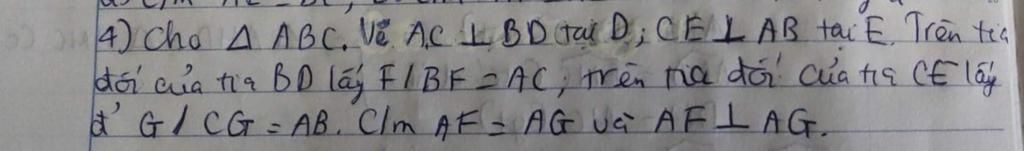 4) Cho Δ ABC. Vẽ AC ⊥ BD tại D; CE ⊥ AB tại E. Trên tia
đối của tia BD lấy F / BF = AC; trên tia đối của tia CE lấy
đ' G / CG = AB. C/m AF = AG và AF ⊥ AG.